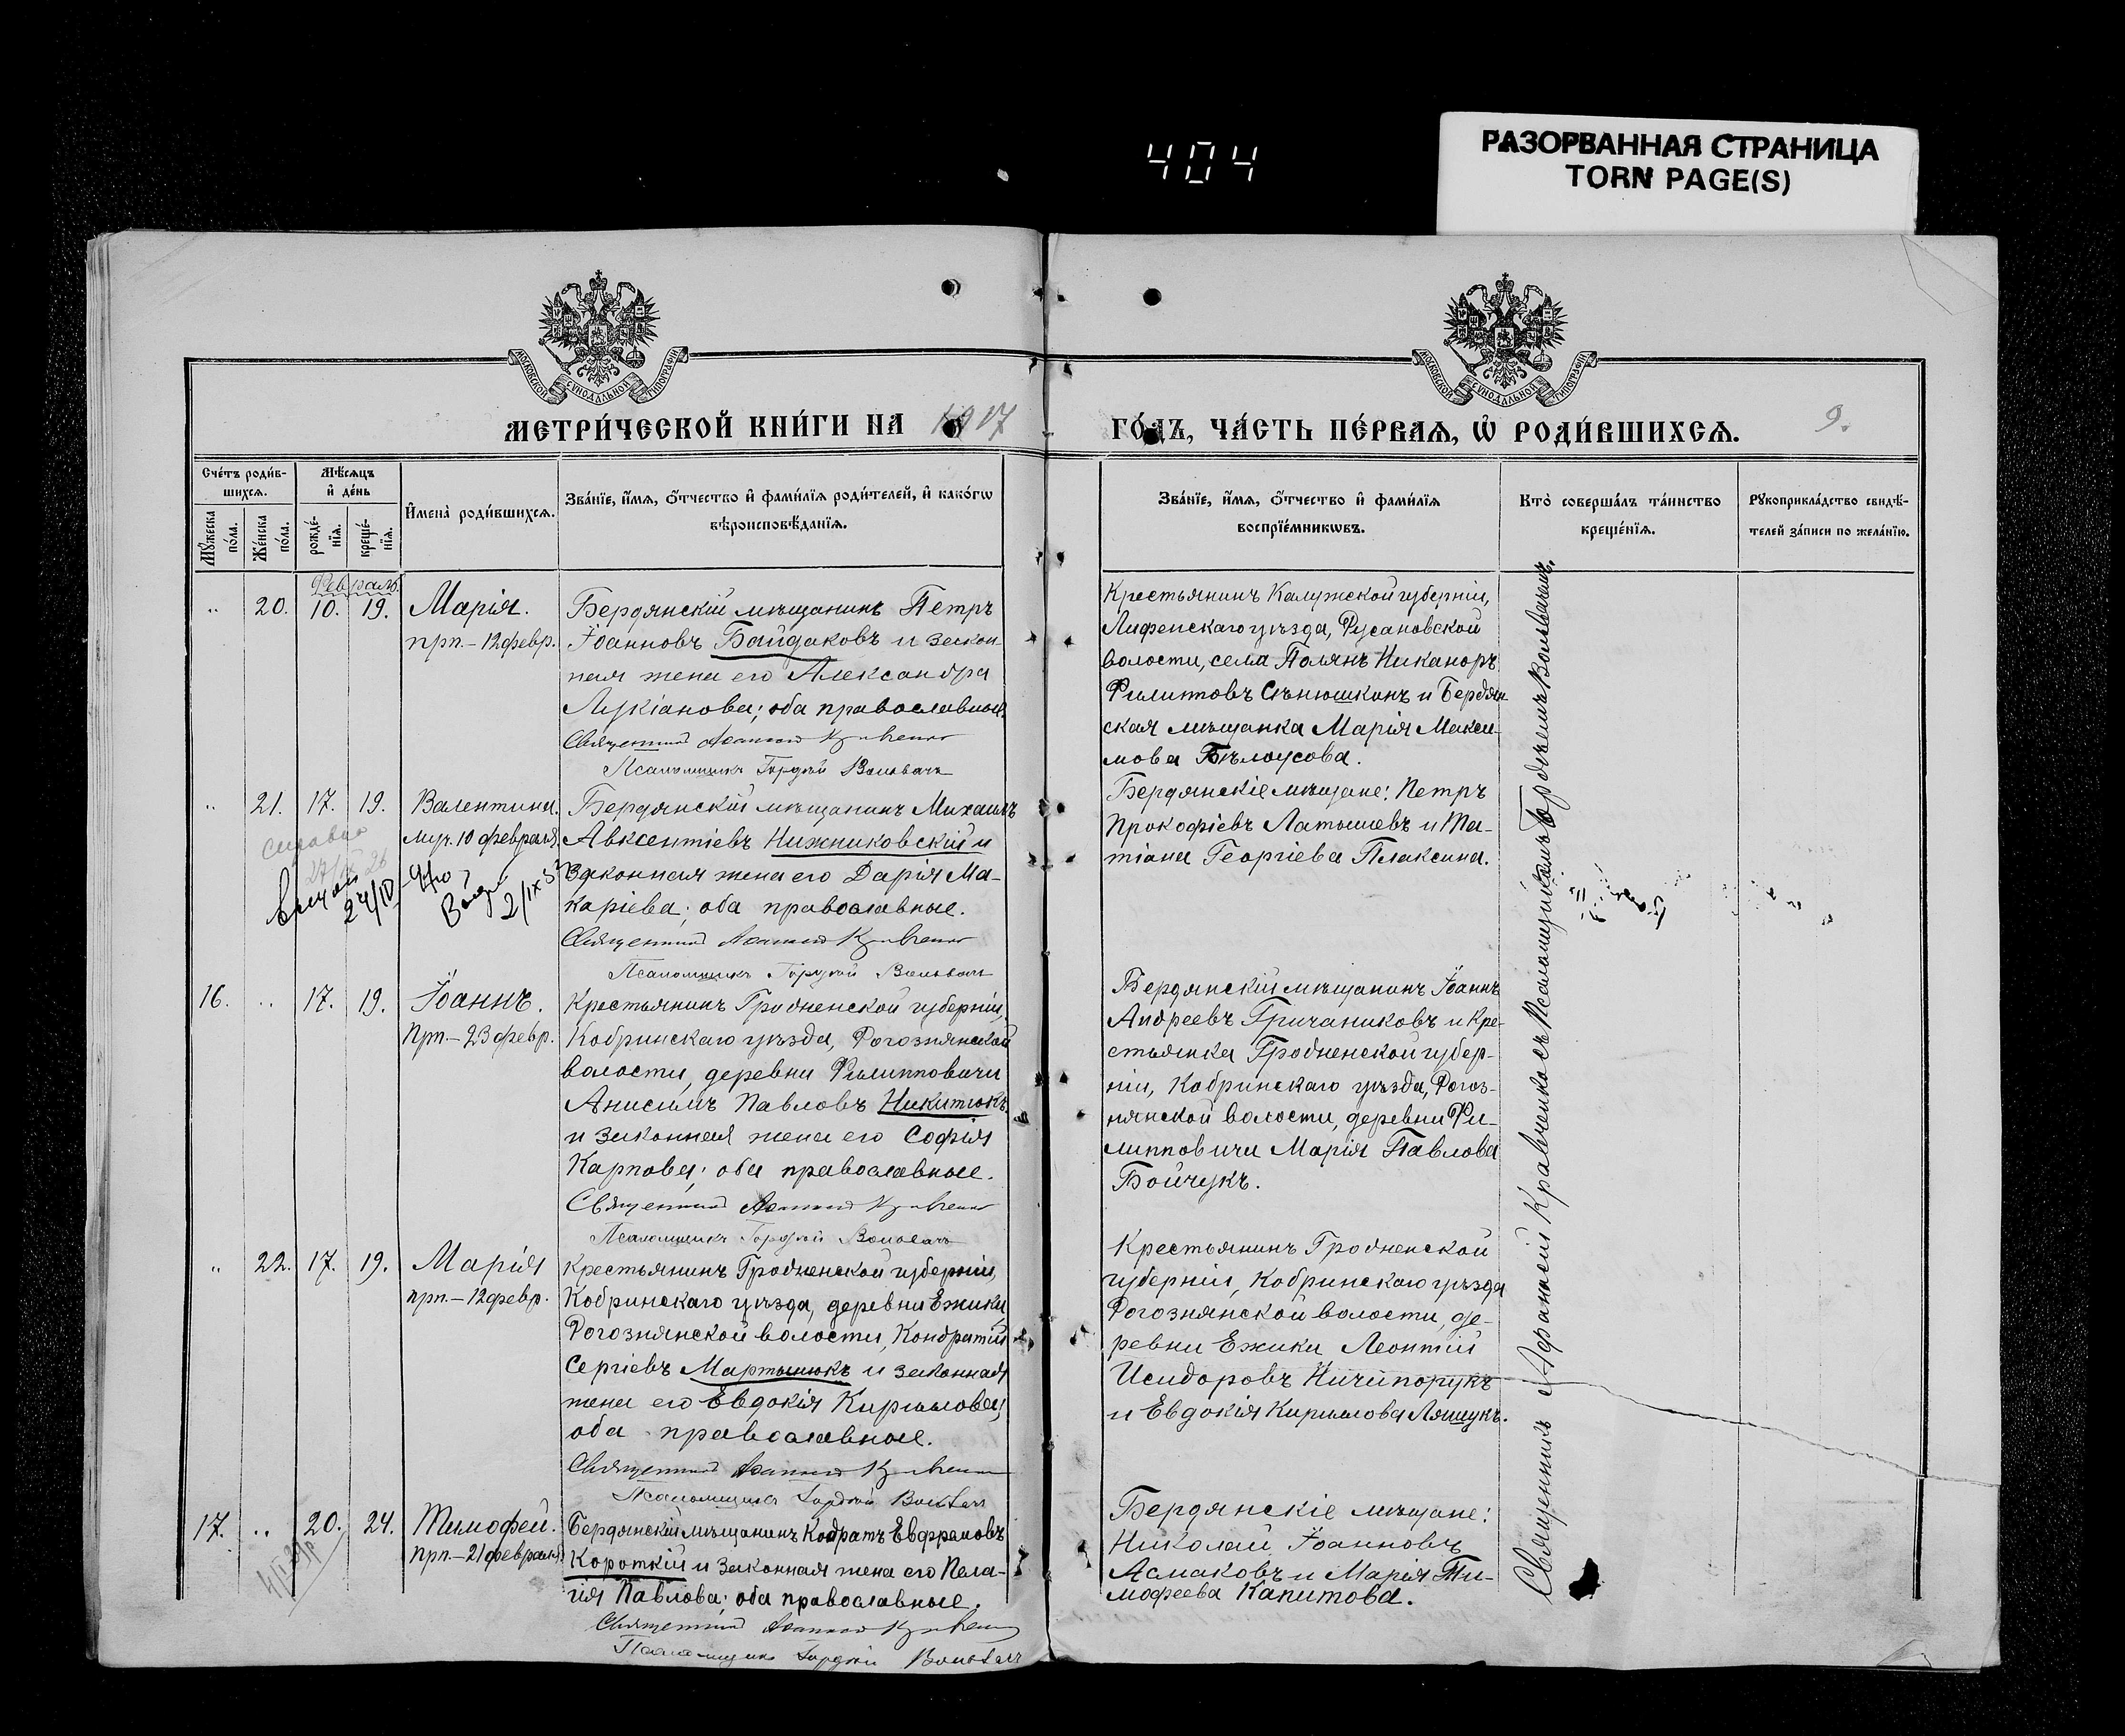 404
РАЗОРВАННАЯ СТРАНИЦА
TORN PAGE(S)
МОСКОВСКОЙ СУНОДАЛЬНОЙ ТИПОГРАФІИ
МОСКОВСКОЙ СУНОДАЛЬНОЙ ТИПОГРАФІИ
МЕТРИ́ЧЕСКОЙ КНИ́ГИ НА 1917
ГО́ДЪ, ЧА́СТЬ ПЕ́РВАѦ, Ѡ҆ РОДИ́ВШИХСѦ. 9.
Сче́тъ роди́в-
шихсѧ.
Мѣ́сѧцъ
и҆ де́нь
Мꙋ́жеска
по́ла.
Же́нска
по́ла.
рожде́-
нїѧ.
креще́-
нїѧ.
И҆мена̀ роди́вшихсѧ.
Зва́нїе, и҆́мѧ, ѻ҆́тчество и҆ фами́лїѧ роди́телей, и҆ како́гѡ
вѣроисповѣ́данїѧ.
Зва́нїе, и҆́мѧ, ѻ҆́тчество и҆ фами́лїѧ
воспрїе́мникѡвъ.
Кто̀ соверша́лъ та́инство
креще́нїѧ.
Рꙋкоприкла́дство свидѣ́-
телей за́писи по жела́нїю.
Февраль.
„ 20. 10. 19. Марія.
прп. - 12 февр.
Бердянскій мѣщанинъ Петръ
Іоанновъ Байдаковъ и закон-
ная жена его Александра
Лукіанова; оба православные.
Священникъ Афанасій Кравченко
Псаломщикъ Гордѣй Воловачъ
Крестьянинъ Калужской губерніи,
уѣзда, Русановской
волости, села Полянъ Никаноръ
Филипповъ Сѣнюшкинъ и Бердян-
ская мѣщанка Марія Макси-
мова Бѣлоусова.
„ 21. 17. 19. Валентина.
муч. 10 февраля.
Бердянскій мѣщанинъ Михаилъ
Авксентіевъ Нижниковскій и
законная жена его Дарія Ма-
каріева; оба православные.
Священникъ Афанасій Кравченко
Псаломщикъ Гордѣй Воловачъ
Бердянскіе мѣщане: Петръ
Прокофіевъ Латышевъ и Та-
тіана Георгіева Плаксина.
16. „ 17. 19. Іоаннъ.
Прп. - 23 февр.
Крестьянинъ Гродненской губерніи,
Кобринскаго уѣзда, Рогознянской
волости, деревни Филипповичи
Анисимъ Павловъ Никитюкъ
и законная жена его Софія
Карпова; оба православные.
Священникъ Афанасій Кравченко
Псаломщикъ Гордѣй Воловачъ
Бердянскій мѣщанинъ Іоаннъ
Андреевъ Гричаниковъ и кре-
стьянка Гродненской губер-
ніи, Кобринскаго уѣзда, Рогоз-
нянской волости, деревни Фи-
липповичи Марія Павлова
Бойчукъ.
„ 22. 17. 19. Марія
прп. - 12 февр.
Крестьянинъ Гродненской губерніи,
Кобринскаго уѣзда, деревни Ежики,
Рогознянской волости, Кондратій
Сергіевъ Мартынюкъ и законная
жена его Евдокія Кириллова;
оба православные.
Священникъ Афанасій Кравченко
Псаломщикъ Гордѣй Воловачъ
Крестьянинъ Гродненской
губерніи, Кобринскаго уѣзда
Рогознянской волости, де-
ревни Ежики Леонтій
Исидоровъ Ничипорукъ
и Евдокія Кириллова Ляшукъ.
17. „ 20. 24. Тимофей.
прп. - 21 февраля
Бердянскій мѣщанинъ Кодратъ Евфремовъ
Короткій и законная жена его Пела-
гія Павлова; оба православные.
Священникъ Афанасій Кравченко
Псаломщикъ Гордѣй Воловачъ
Бердянскіе мѣщане:
Николай Іоанновъ
Асмаковъ и Марія Ти-
мофеева Капитова.
Священникъ Афанасій Кравченко съ Псаломщикомъ Гордѣемъ Воловачемъ.